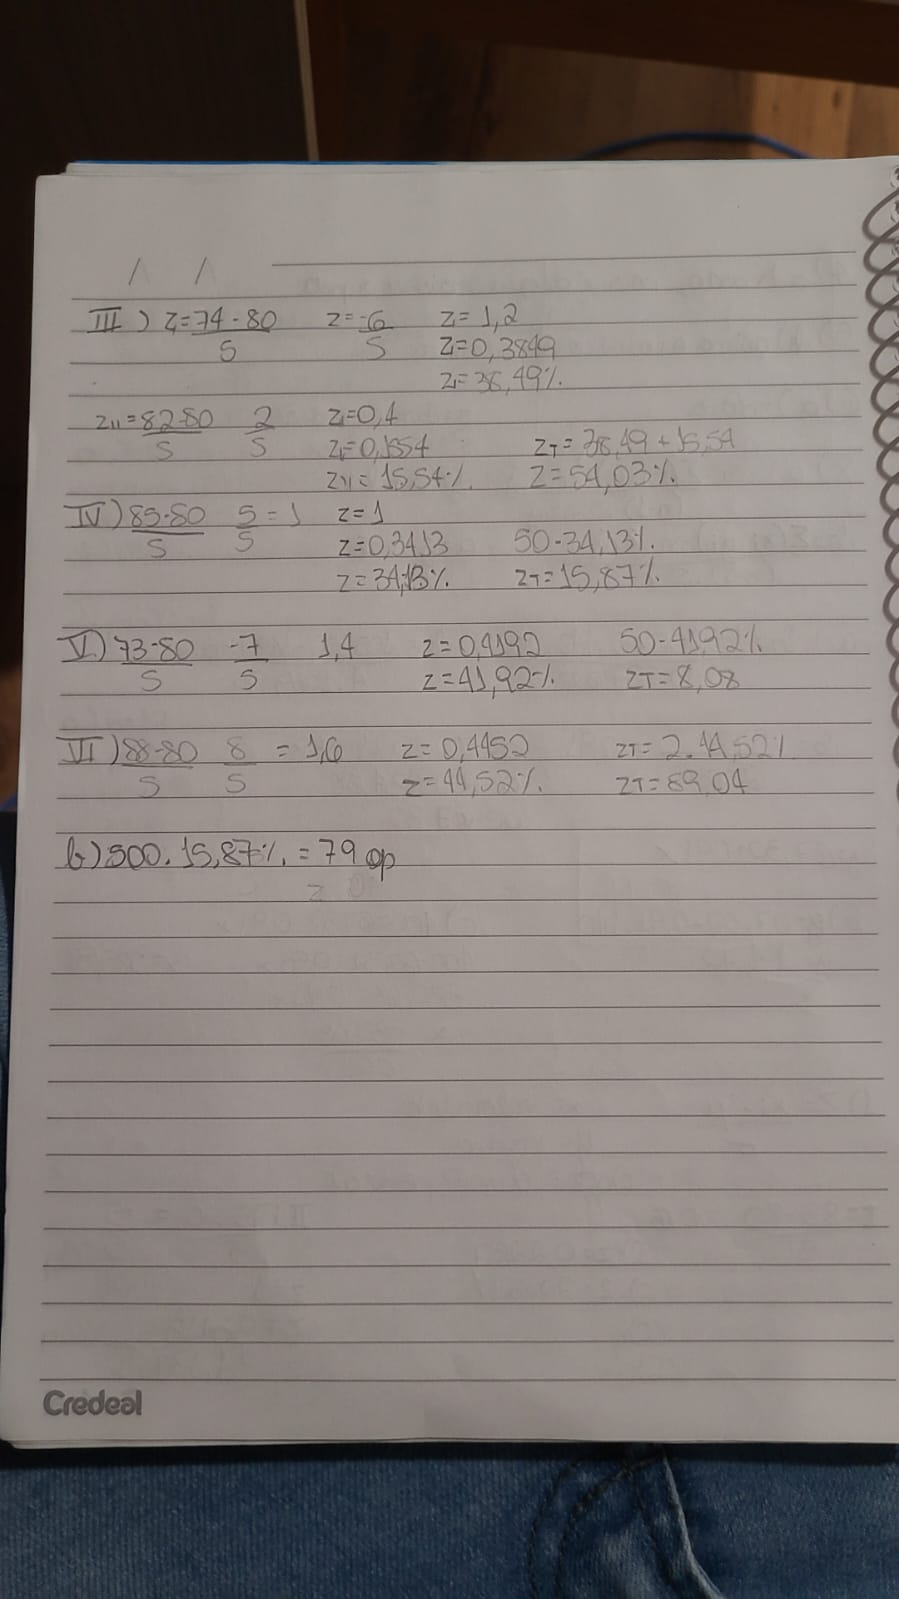 III) Z=74-80/5 Z=-6/5 Z=1,2
Z=0,3849
Z=38,49%.
ZII=82-80/5 2/5 Z=0,4
Z=0,1554 ZT=38,49+15,54
ZII=15,54% Z=54,03%.
IV) 85-80/5 5/5=1 Z=1
Z=0,3413 50-34,13%.
Z=34,13% ZT=15,87%.
V) 73-80/5 -7/5 1,4 Z=0,4192 50-41,92%
Z=41,92% ZT=8,08
VI) 88-80/5 8/5=1,6 Z=0,4452 ZT=2.44,52%
Z=44,52%. ZT=89,04
b) 500.15,87%.=79 op
Credeal